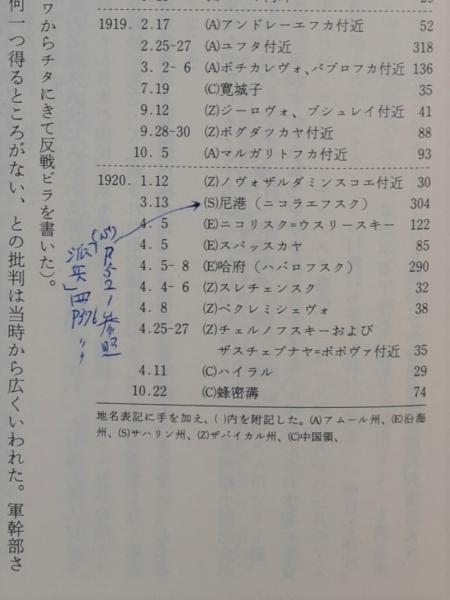 1919. 2.17 (A)アンドレーエフカ付近 52
2.25-27 (A)ユフタ付近 318
3. 2- 6 (A)ボチカレヴォ、パブロフカ付近 136
7.19 (C)寛城子 35
9.12 (Z)ジーロヴォ、プシュレイ付近 41
9.28-30 (Z)ボグダツカヤ付近 88
10. 5 (A)マルガリトフカ付近 93
1920. 1.12 (Z)ノヴォザルダミンスコエ付近 30
3.13 (S)尼港(ニコラエフスク) 304
4. 5 (E)ニコリスク=ウスリースキー 122
4. 5 (E)スパッスカヤ 85
4. 5- 8 (E)哈府(ハバロフスク) 290
4. 4- 6 (Z)スレチェンスク 32
4. 8 (Z)ペクレミシェヴォ 38
4.25-27 (Z)チェルノフスキーおよび
ザスチェプナヤ=ボボヴァ付近 35
4.11 (C)ハイラル 29
10.22 (C)蜂密溝 74
地名表記に手を加え、( )内を附記した。(A)アムール州、(E)沿海
州、(S)サハリン州、(Z)ザバイカル州、(C)中国領、
P521参照
派兵」四P376
ワからチタにきて反戦ビラを書いた)。
何一つ得るところがない、との批判は当時から広くいわれた。軍幹部さ